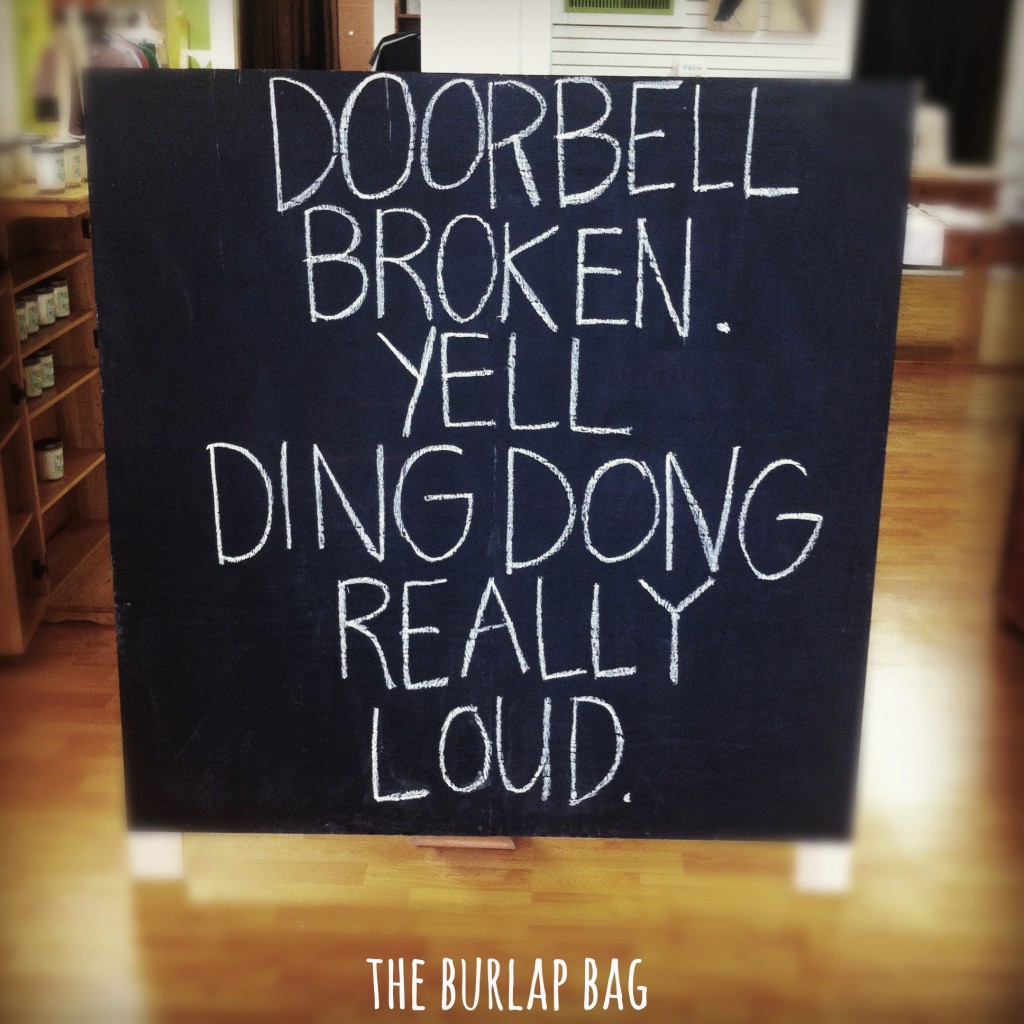 DOORBELL
BROKEN.
YELL
DING DONG
REALLY
LOUD.
THE BURLAP BAG